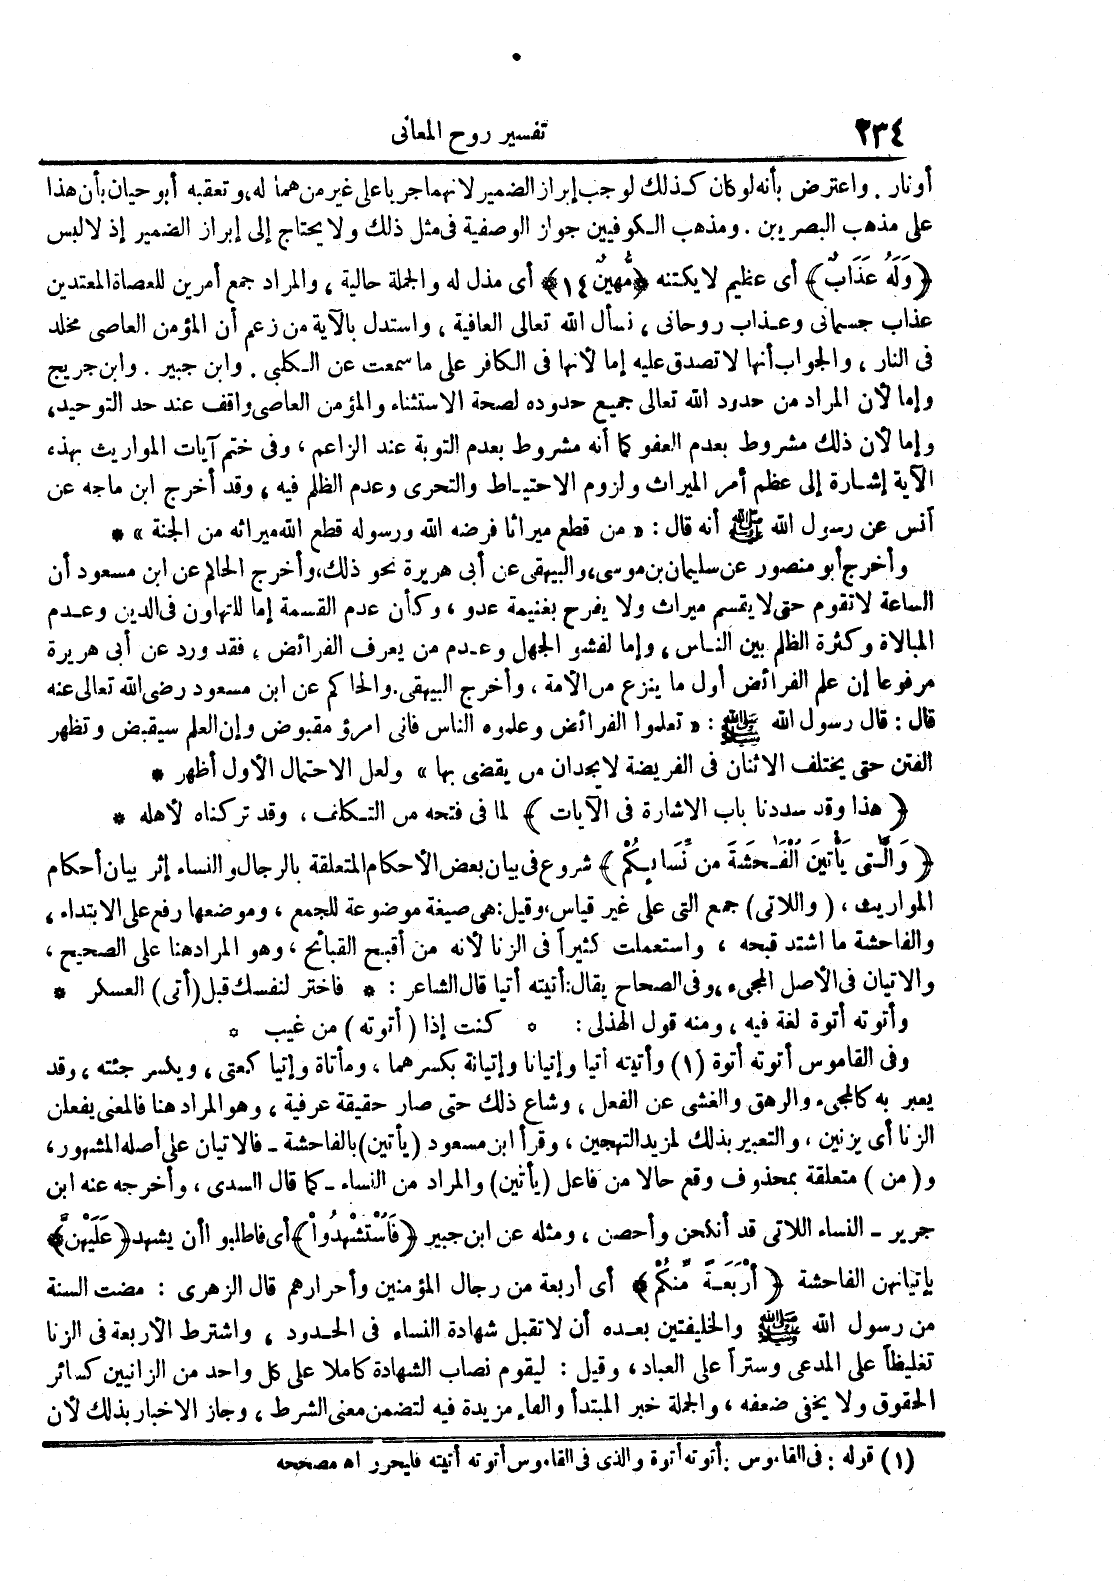 ٢٣٤
تفسير روح المعانى
أونار . واعترض بأنه لو كان كذلك لوجب إبراز الضمير لانهما جريا على غير من هما له، وتعقبه أبو حيان بأن هذا
على مذهب البصريين . ومذهب الكوفيين جواز الوصفية فى مثل ذلك ولا يحتاج إلى إبراز الضمير إذ لا لبس
﴿ وَلَهُ عَذَابٌ ﴾ أى عظيم لا يكتنه ﴿مُّهِينٌ ١٤﴾ أى مذل له والجملة حالية ، والمراد جمع أمرين للعصاة المعتدين
عذاب جسمانى وعذاب روحانى ، نسأل الله تعالى العافية ، واستدل بالآية من زعم أن المؤمن العاصى مخلد
فى النار ، والجواب أنها لا تصدق عليه إما لأنها فى الكافر على ما سمعت عن الكلبى . وابن جبير . وابن جريج
وإما لأن المراد من حدود الله تعالى جميع حدوده لصحة الاستثناء والمؤمن العاصى واقف عند حد التوحيد،
وإما لأن ذلك مشروط بعدم العفو كما أنه مشروط بعدم التوبة عند الزاعم ، وفى ختم آيات المواريث بهذه
الآية إشارة إلى عظم أمر الميراث ولزوم الاحتياط والتحرى وعدم الظلم فيه ، وقد أخرج ابن ماجه عن
أنس عن رسول الله ﷺ أنه قال : « من قطع ميراثا فرضه الله ورسوله قطع الله ميراثه من الجنة » *
وأخرج أبو منصور عن سليمان بن موسى، والبيهقى عن أبى هريرة نحو ذلك، وأخرج الحاكم عن ابن مسعود أن
الساعة لا تقوم حتى لا يقسم ميراث ولا يفرح بغنيمة عدو ، وكأن عدم القسمة إما للتهاون فى الدين وعدم
المبالاة وكثرة الظلم بين الناس ، وإما لفشو الجهل وعدم من يعرف الفرائض ، فقد ورد عن أبى هريرة
مرفوعا إن علم الفرائض أول ما ينزع من الأمة ، وأخرج البيهقى. والحاكم عن ابن مسعود رضى الله تعالى عنه
قال : قال رسول الله ﷺ : « تعلموا الفرائض وعلموه الناس فانى امرؤ مقبوض وإن العلم سيقبض وتظهر
الفتن حتى يختلف الاثنان فى الفريضة لا يجدان من يقضى بها » ولعل الاحتمال الأول أظهر *
﴿ هذا وقد سددنا باب الاشارة فى الآيات ﴾ لما فى فتحه من التكلف ، وقد تركناه لأهله *
﴿ وَالَّٰتِى يَأْتِينَ الْفَٰحِشَةَ مِن نِّسَائِكُمْ ﴾ شروع فى بيان بعض الأحكام المتعلقة بالرجال والنساء إثر بيان أحكام
المواريث ، ( واللاتى ) جمع التى على غير قياس، وقيل: هى صيغة موضوعة للجمع ، وموضعها رفع على الابتداء ،
والفاحشة ما اشتد قبحه ، واستعملت كثيراً فى الزنا لأنه من أقبح القبائح ، وهو المراد هنا على الصحيح ،
والاتيان فى الأصل المجىء ، وفى الصحاح يقال: أتيته أتيا قال الشاعر : * فاختر لنفسك قبل (أتى) العسكر *
وأتوته أتوة لغة فيه ، ومنه قول الهذلى : * كنت إذا ( أتوته ) من غيب *
وفى القاموس أتوته أتوة (١) وأتيته أتيا وإتيانا وإتيانة بكسرهما ، ومأتاة وإتيا كعتى ، ويكسر جئته ، وقد
يعبر به كالمجىء والرهق والغشى عن الفعل ، وشاع ذلك حتى صار حقيقة عرفية ، وهو المراد هنا فالمعنى يفعلن
الزنا أى يزنين ، والتعبير بذلك لمزيد التهجين ، وقرأ ابن مسعود ( يأتين ) بالفاحشة ـ فالاتيان على أصله المشهور ،
و ( من ) متعلقة بمحذوف وقع حالا من فاعل (يأتين) والمراد من النساء ـ كما قال السدى ، وأخرجه عنه ابن
جرير ـ النساء اللاتى قد أنكحن وأحصن ، ومثله عن ابن جبير ﴿ فَاسْتَشْهِدُواْ ﴾ أى فاطلبوا أن يشهد ﴿ عَلَيْهِنَّ ﴾
بإتيانهن الفاحشة ﴿ أَرْبَعَةً مِّنكُمْ ﴾ أى أربعة من رجال المؤمنين وأحرارهم قال الزهرى : مضت السنة
من رسول الله ﷺ والخليفتين بعده أن لا تقبل شهادة النساء فى الحدود ، واشترط الأربعة فى الزنا
تغليظاً على المدعى وستراً على العباد ، وقيل : ليقوم نصاب الشهادة كاملا على كل واحد من الزانيين كسائر
الحقوق ولا يخفى ضعفه ، والجملة خبر المبتدأ والفاء مزيدة فيه لتضمن معنى الشرط ، وجاز الاخبار بذلك لأن
(١) قوله : فى القاموس : أتوته أتوة والذى فى القاموس أتوته أتيته فليحرر اه مصححه